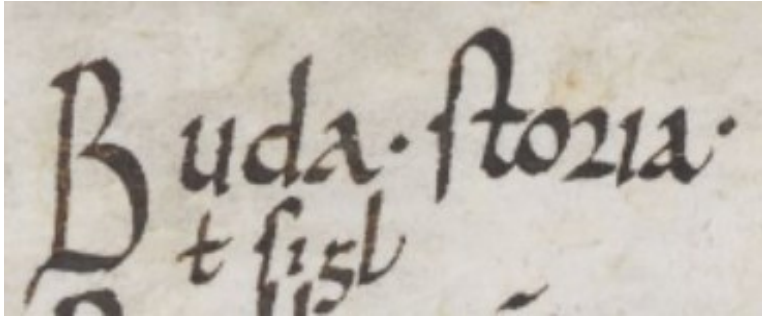 Buda · storia ·
ł sigl